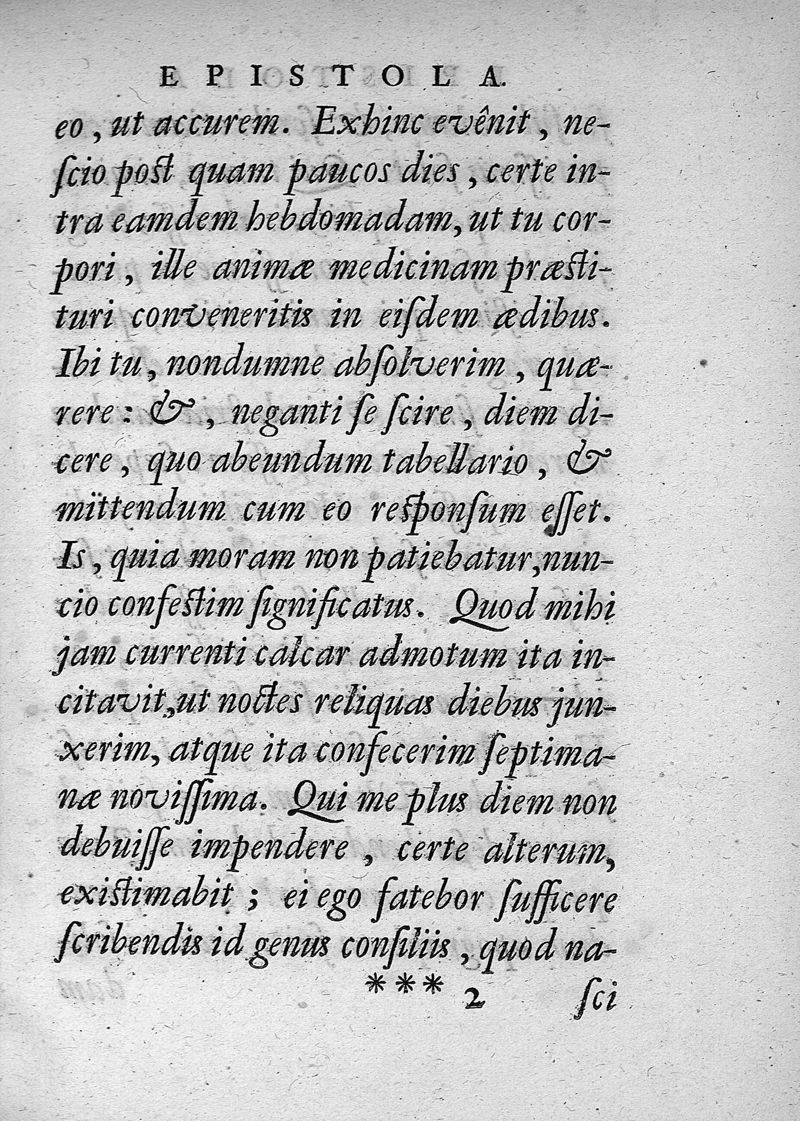 EPISTOLA.
eo, ut accurem. Exhinc evênit, ne-
ſcio post quam paucos dies, certe in-
tra eamdem hebdomadam, ut tu cor-
pori, ille animæ medicinam præsti-
turi conveneritis in eiſdem ædibus.
Ibi tu, nondumne abſolverim, quæ-
rere: &, neganti ſe ſcire, diem di-
cere, quo abeundum tabellario, &
mittendum cum eo responſum eſſet.
Is, quia moram non patiebatur, nun-
cio confestim ſignificatus. Quod mihi
jam currenti calcar admotum ita in-
citavit, ut noctes reliquas diebus jun-
xerim, atque ita confecerim ſeptima-
næ noviſſima. Qui me plus diem non
debuiſſe impendere, certe alterum,
existimabit; ei ego fatebor ſufficere
ſcribendis id genus conſiliis, quod na-
*** 2 ſci